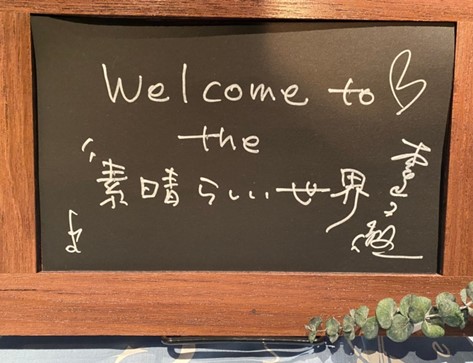 Welcome to
the
"素晴らしい世界"